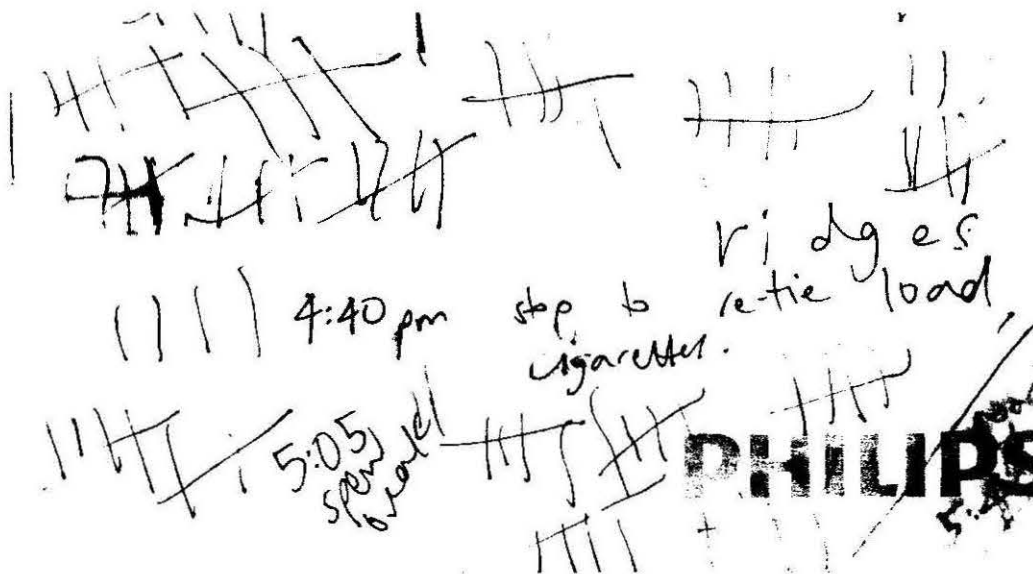 ridges
4:40 pm stop to re-tie load
cigarettes.
5:05
PHILIPS